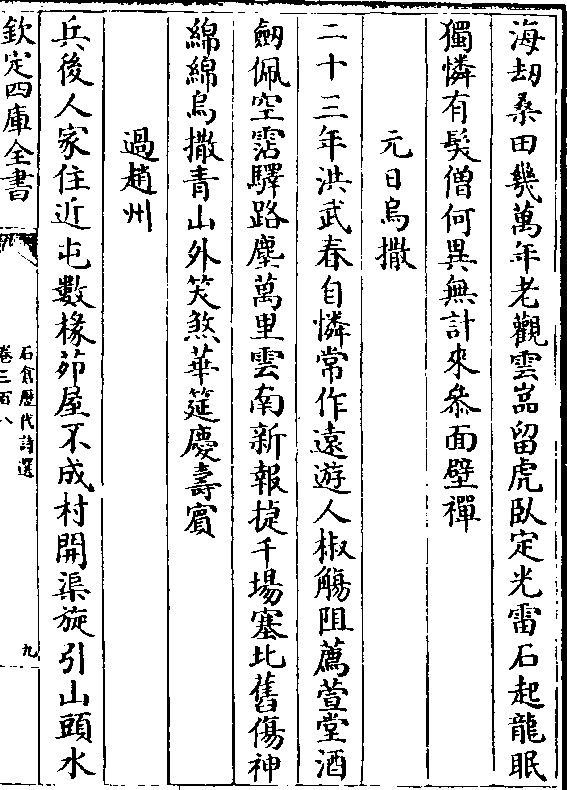 海刼桑田幾萬年老觀雲嵓留虎臥定光雷石起龍眠
獨憐有髮僧何異無計來叅面壁禪
元日烏撒
二十三年洪武春自憐常作遠遊人椒觴阻薦萱堂酒
劒佩空霑驛路塵萬里雲南新報捷千塲塞北舊傷神
綿綿烏撒青山外笑煞華筵慶壽賔
過趙州
兵後人家住近屯數椽茆屋不成村開渠旋引山頭水
欽定四庫全書
石倉歷代詩選
卷三百八
九